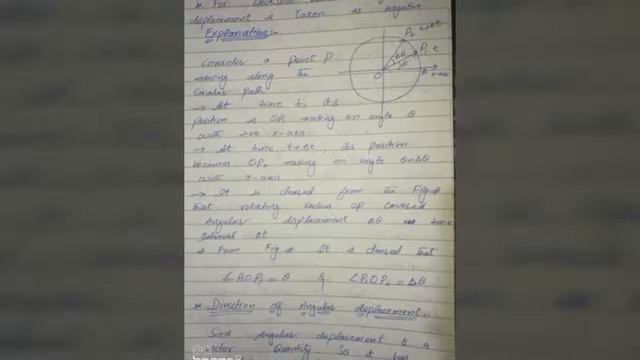 * For
displacement is Taken as negative
Explanation:-
P2 t+Δt
P1 t
Δθ
θ
O
A
Consider a point P
moving along the
circular path
→ At time t, its
position is OP1 making an angle θ
with +ive x-axis
→ At time t+Δt, its position
becomes OP2 making an angle θ+Δθ
with x-axis
→ It is cleared from the Fig
that rotating radius OP covered
Angular displacement Δθ time
interval Δt
→ From Fig It is cleared that
∠AOP1 = θ & ∠P1OP2 = Δθ
* Direction of Angular displacement:-
Since Angular displacement is a
vector Quantity So it has